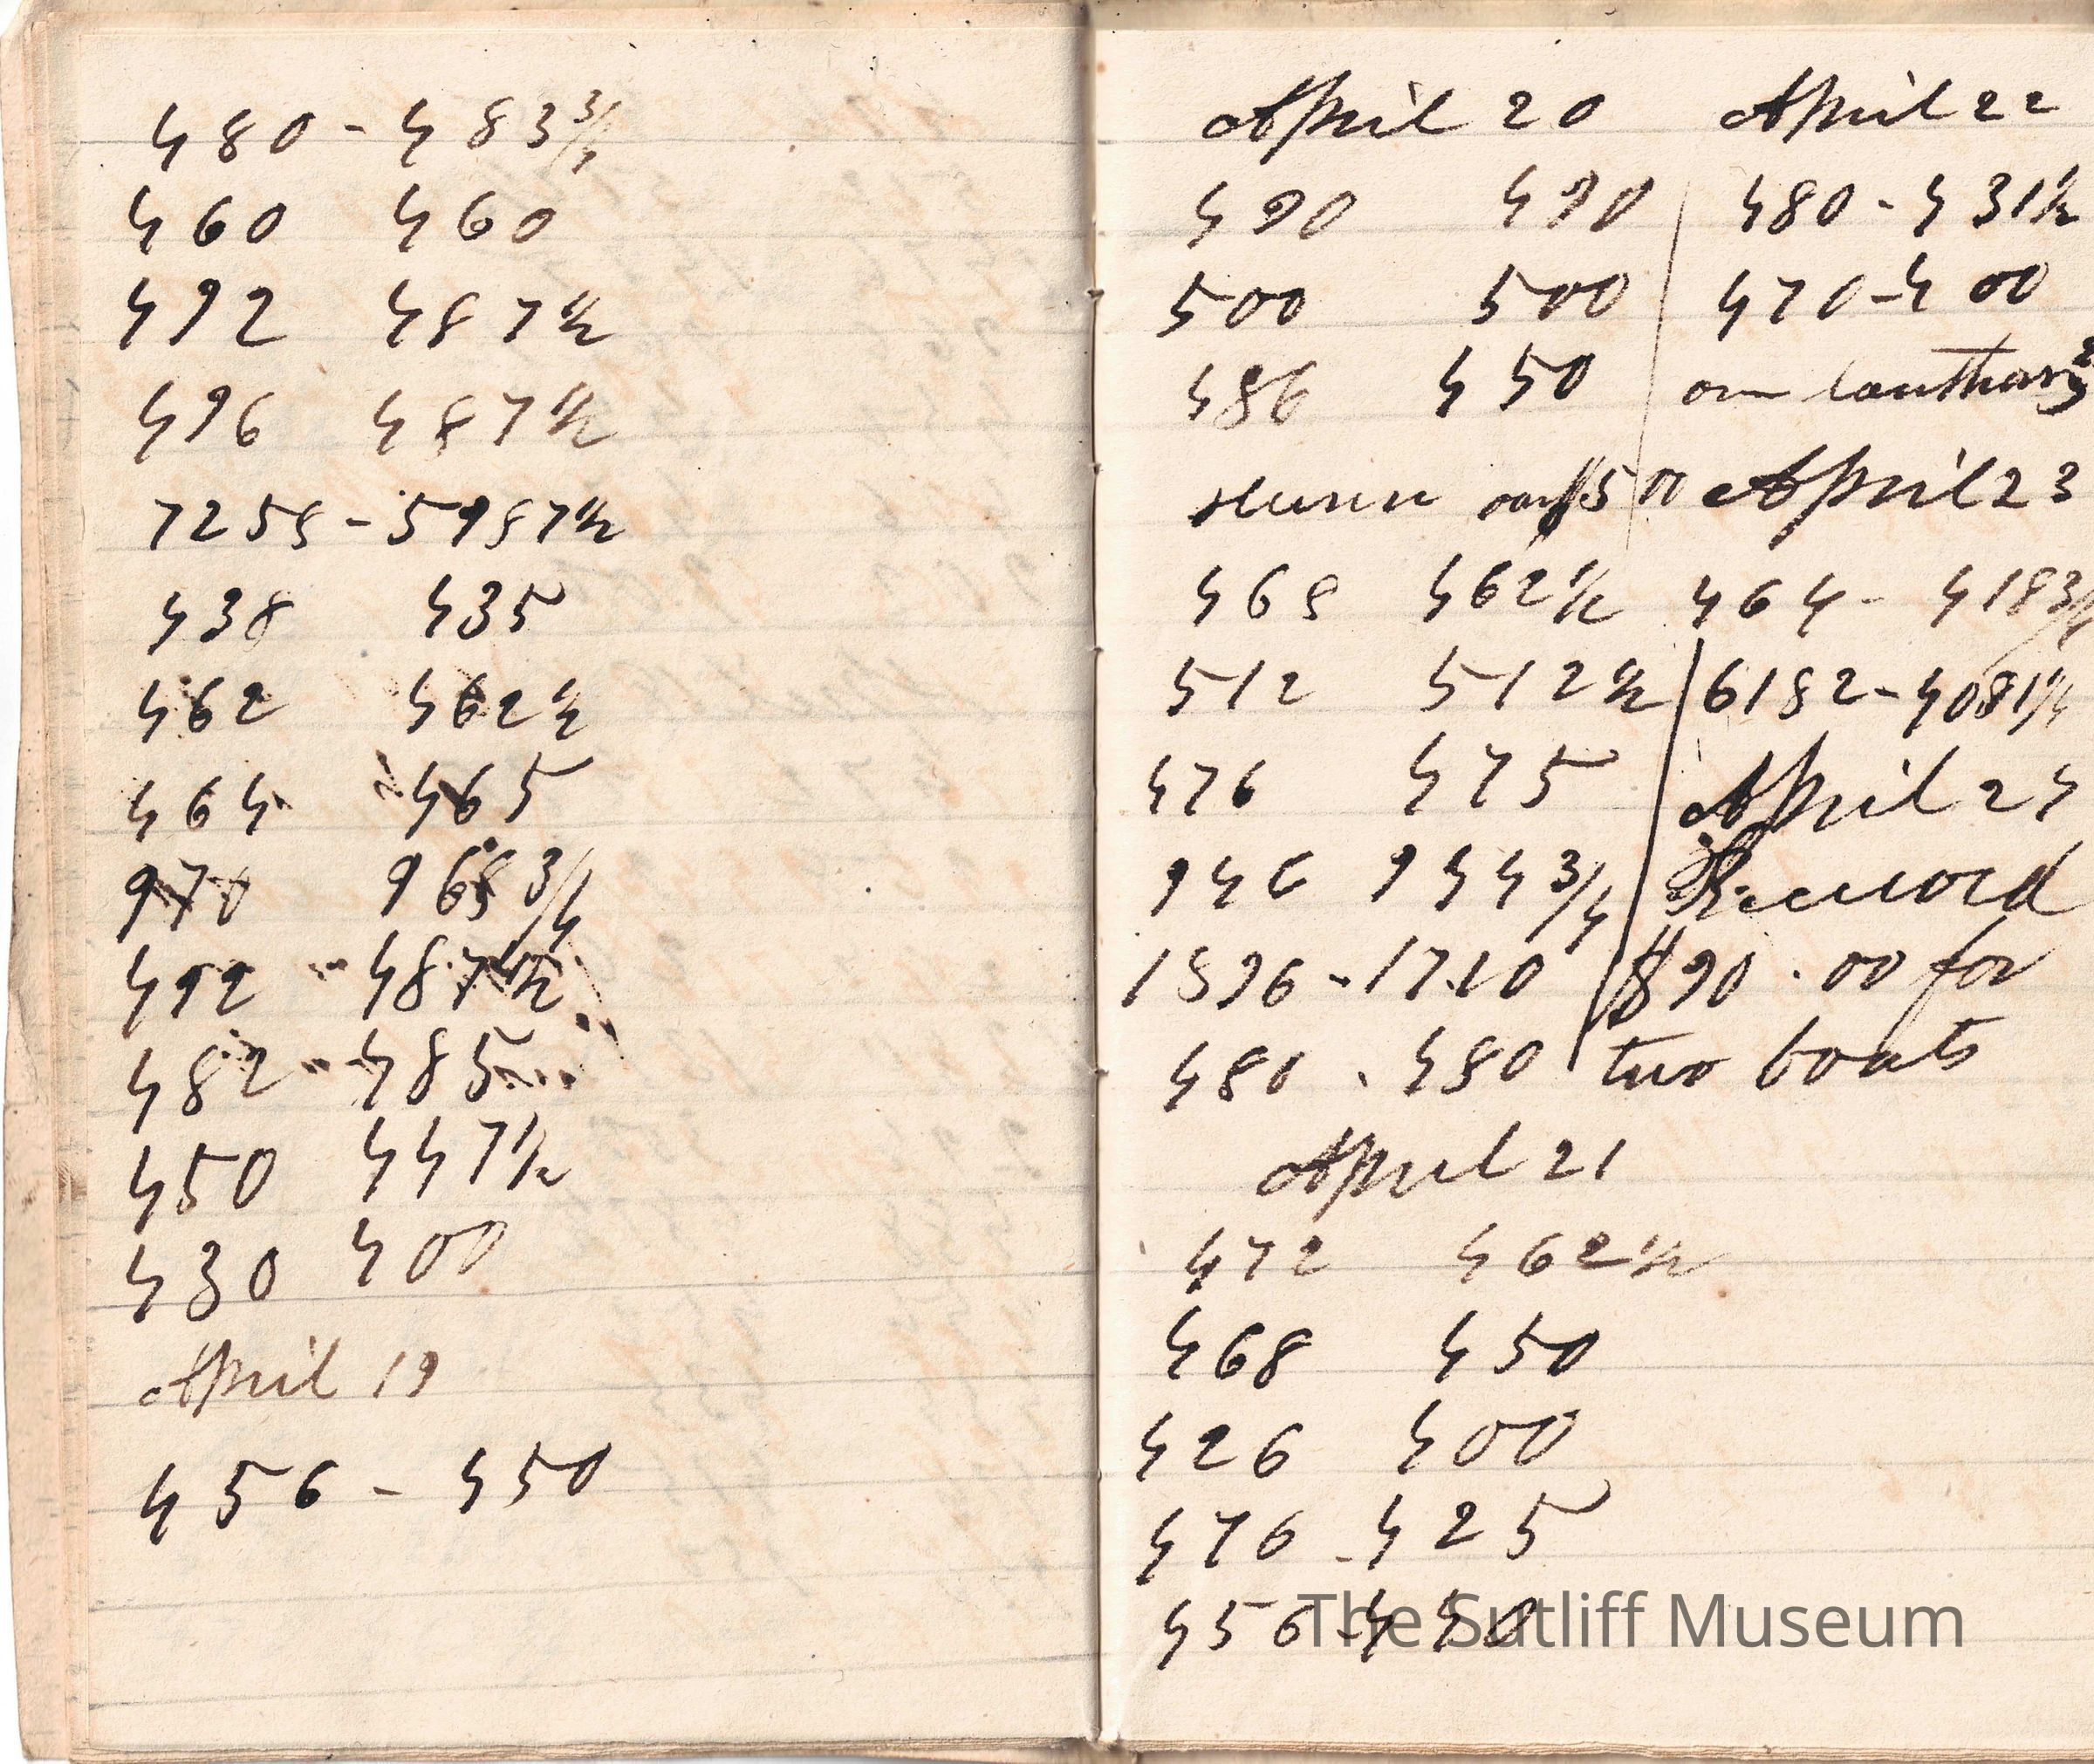 480 - 483 3/4
460 460
492 487 1/2
496 487 1/2
7258 - 5987 1/2
438 435
462 462 1/2
464 465
970 968 3/4
492 - 487 1/2
482 - 485
450 447 1/2
430 400
April 19
456 - 450
April 20
490 490
500 500
486 450
$5 00
468 462 1/2
512 512 1/2
476 475
946 944 3/4
1896 - 1710
480 . 480
April 21
472 462 1/2
468 450
426 400
476 - 425
456 - 440
April 22
480 - 431 1/2
470 - 400
on
April 23
464 - 418 3/4
6182 - 4081 1/4
April 24
$90.00 for
two boats
The Sutliff Museum